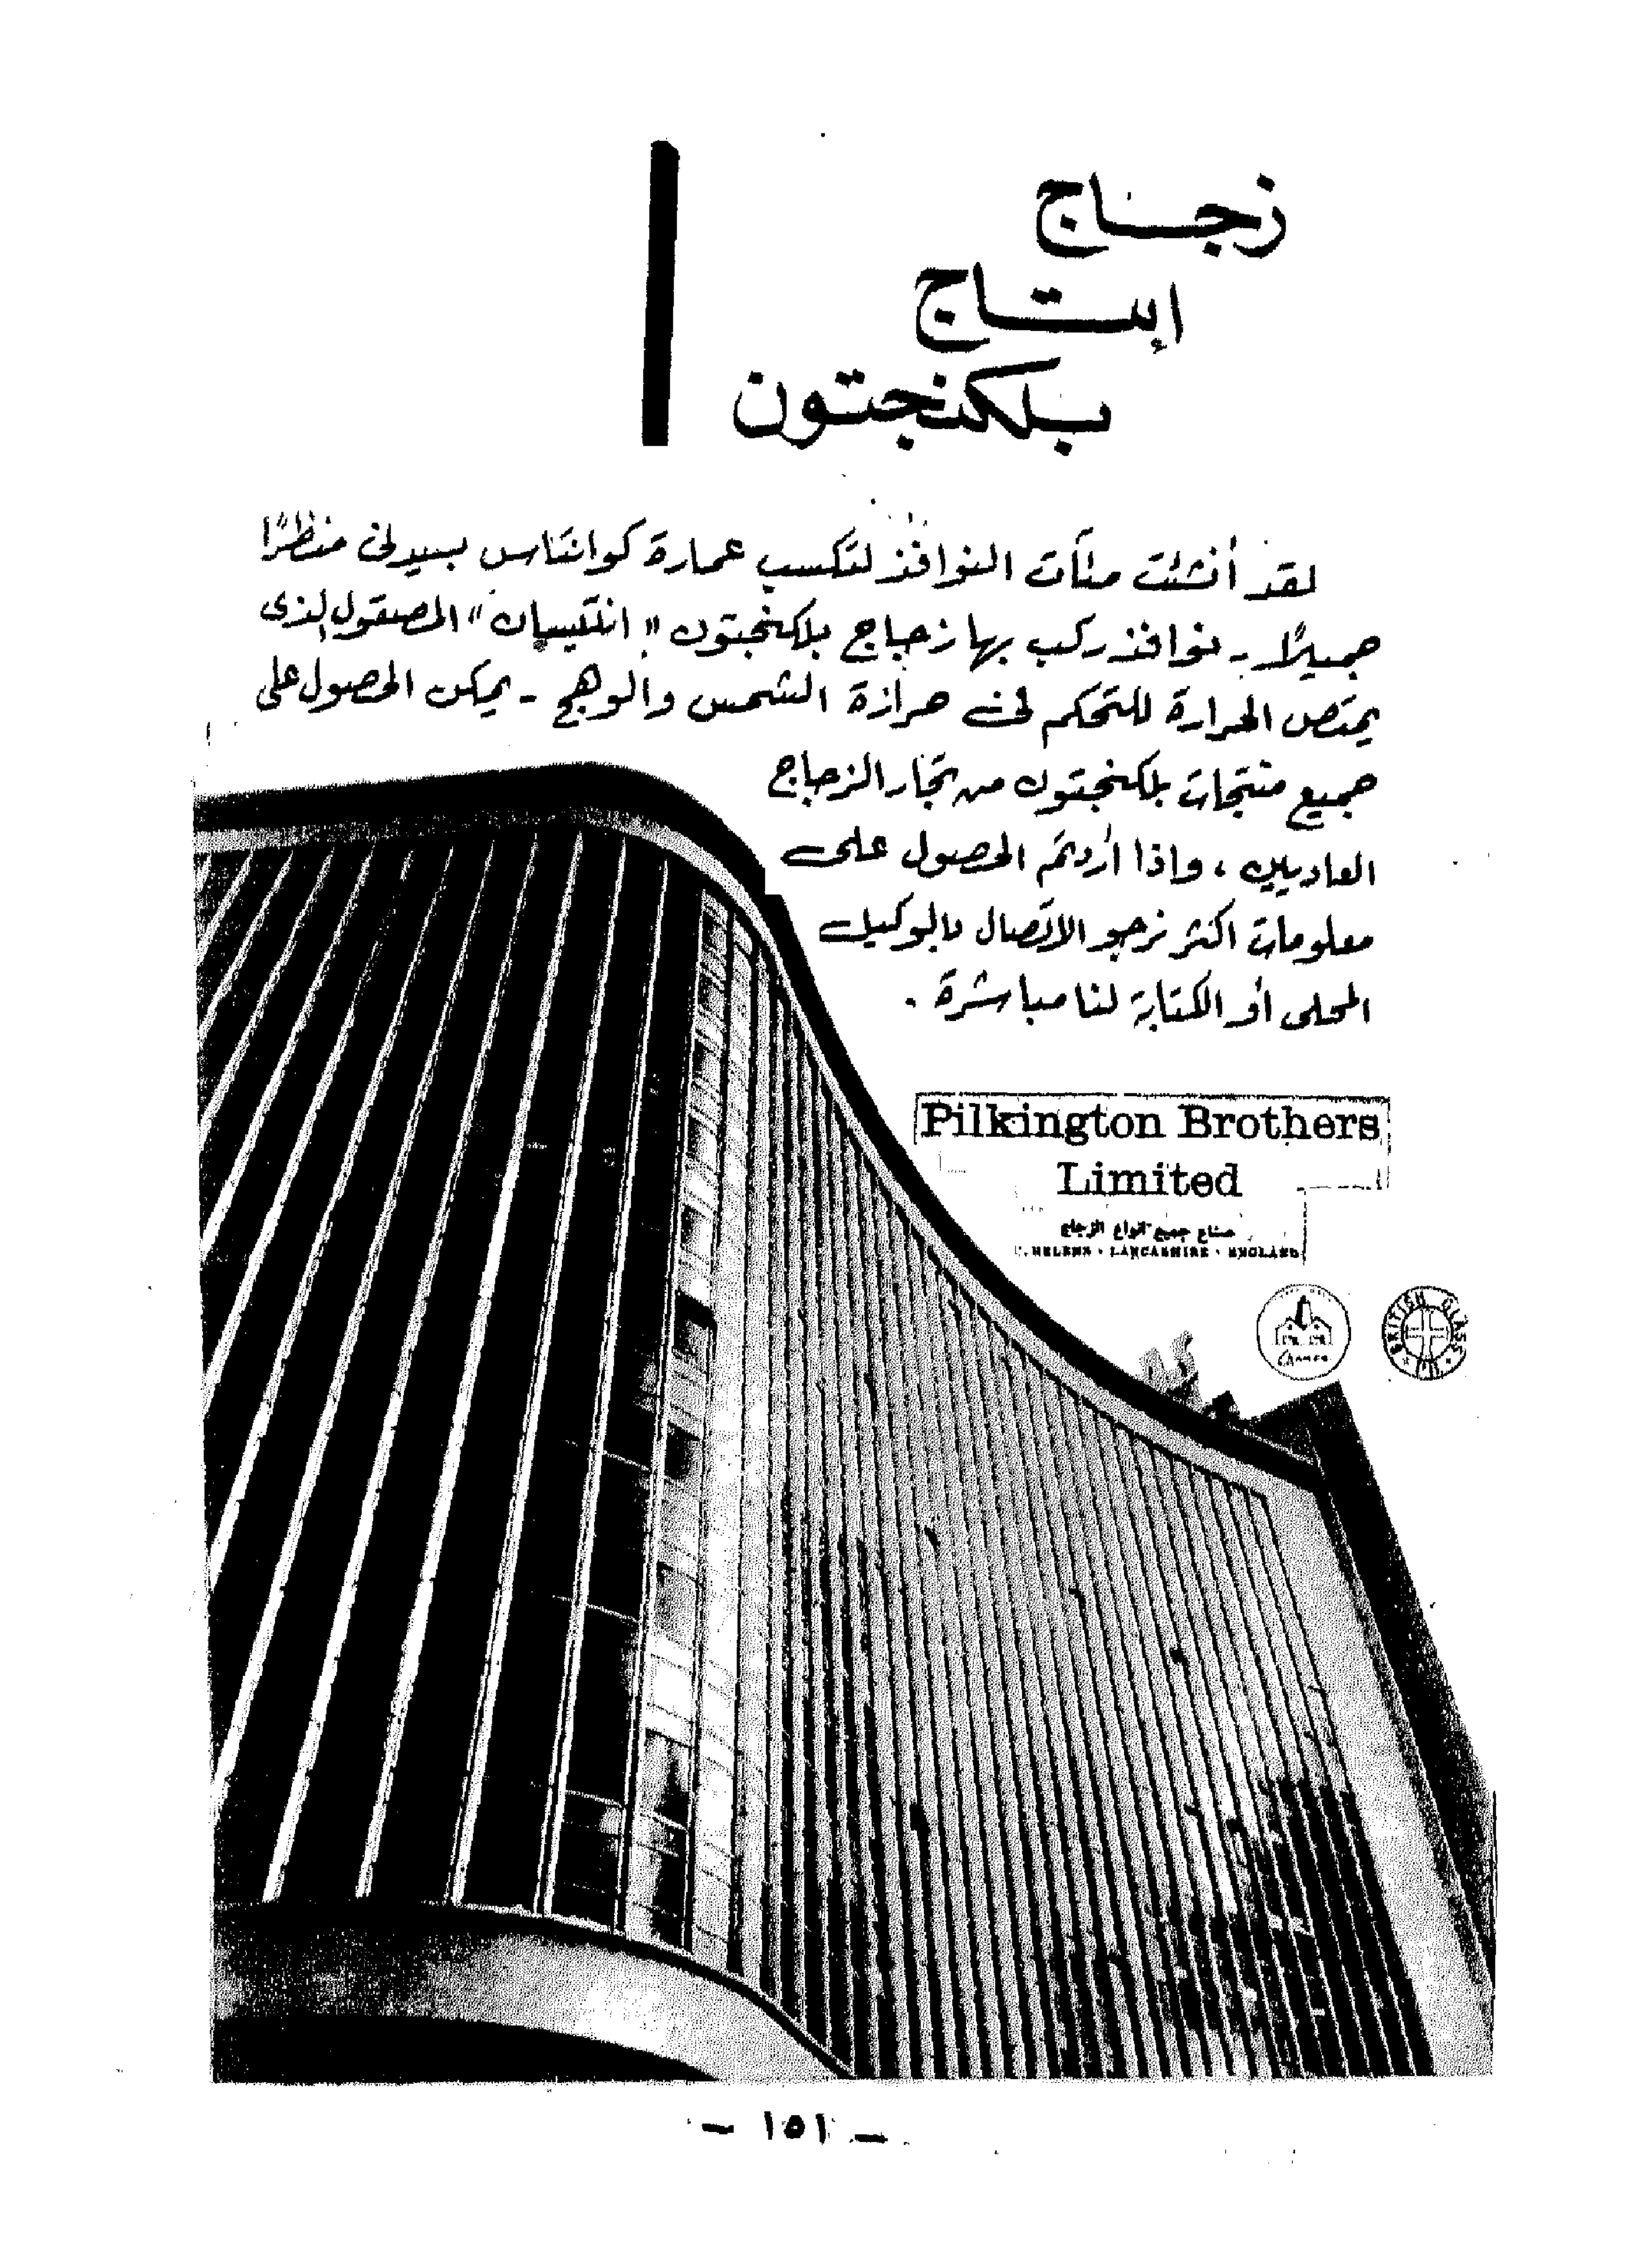 زجاج
إنتاج
بلكنجتون
لقد أنشئت مئات النوافذ لتكسب عمارة كوانتاس بسيدنى منظرًا
جميلاً - نوافذ ركب بها زجاج بلكنجتون " انتيسان " المصقول الذى
يمتص الحرارة للتحكم فى حرارة الشمس والوهج - يمكن الحصول على
جميع منتجات بلكنجتون من تجار الزجاج
العاديين ، واذا أردتم الحصول على
معلومات اكثر نرجو الاتصال بالوكيل
المحلى أو الكتابة لنا مباشرة .
Pilkington Brothers
Limited
صناع جميع انواع الزجاج
HELENS · LANCASHIRE · ENGLAND
BRITISH GLASS
— ١٥١ —